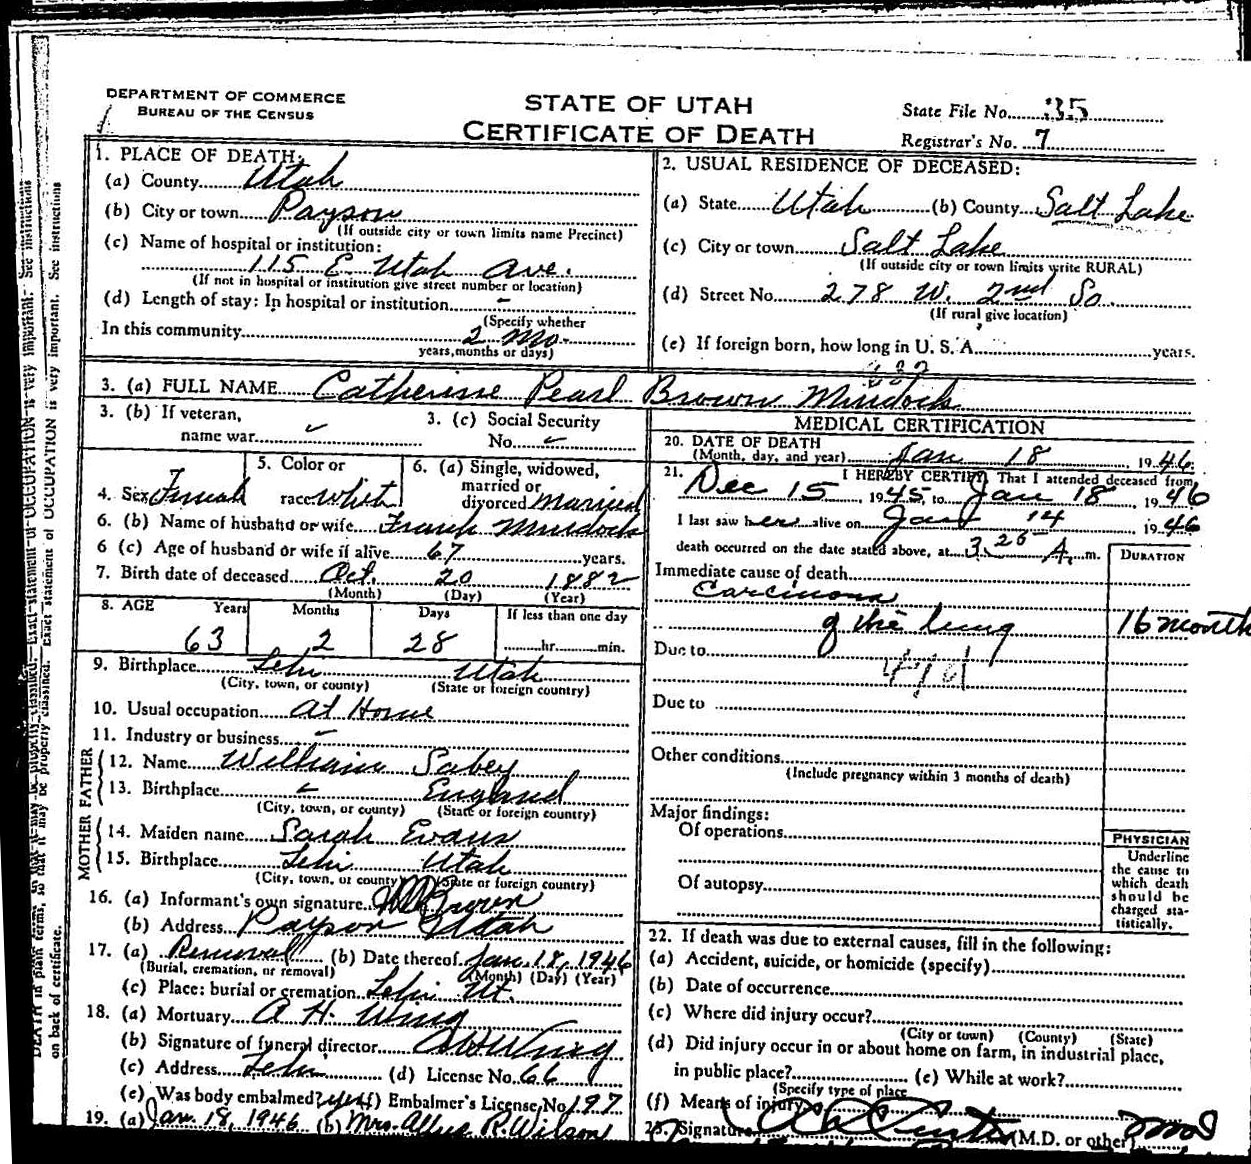 DEPARTMENT OF COMMERCE
BUREAU OF THE CENSUS
STATE OF UTAH
CERTIFICATE OF DEATH
State File No. 35
Registrar's No. 7
1. PLACE OF DEATH:
(a) County Utah
(b) City or town Payson
(If outside city or town limits name Precinct)
(c) Name of hospital or institution:
115 E Utah Ave.
(If not in hospital or institution give street number or location)
(d) Length of stay: In hospital or institution -
(Specify whether
In this community 2 Mo.
years, months or days)
2. USUAL RESIDENCE OF DECEASED:
(a) State Utah (b) County Salt Lake
(c) City or town Salt Lake
(If outside city or town limits write RURAL)
(d) Street No. 278 W. 2nd So
(If rural give location)
(e) If foreign born, how long in U. S. A. years.
3. (a) FULL NAME Catherine Pearl Brown Murdock
3. (b) If veteran,
name war
3. (c) Social Security
No.
4. Sex Female
5. Color or
race White
6. (a) Single, widowed,
married or
divorced Married
6. (b) Name of husband or wife Frank Murdock
6 (c) Age of husband or wife if alive 67 years.
7. Birth date of deceased Oct. 20 1882
(Month) (Day) (Year)
8. AGE Years Months Days If less than one day
63 2 28 hr. min.
9. Birthplace Lehi Utah
(City, town, or county) (State or foreign country)
10. Usual occupation At Home
11. Industry or business -
FATHER
12. Name William Sabey
13. Birthplace England
(City, town, or county) (State or foreign country)
MOTHER
14. Maiden name Sarah Evans
15. Birthplace Lehi Utah
(City, town, or county) (State or foreign country)
16. (a) Informant's own signature Brown
(b) Address Payson Utah
17. (a) Removal (b) Date thereof Jan. 18, 1946
(Burial, cremation, or removal) (Month) (Day) (Year)
(c) Place: burial or cremation Lehi Ut.
18. (a) Mortuary A H. Wing
(b) Signature of funeral director A H Wing
(c) Address Lehi (d) License No. 66
(e) Was body embalmed? yes (f) Embalmer's License No. 197
19. (a) Jan. 18, 1946 (b) Mrs. R. Wilson
MEDICAL CERTIFICATION
20. DATE OF DEATH
(Month, day, and year) Jan 18 1946.
21. I HEREBY CERTIFY, That I attended deceased from
Dec 15, 1945 to Jan 18, 1946
I last saw her alive on Jan 14, 1946
death occurred on the date stated above, at 3.25 A. m.
DURATION
Immediate cause of death
Carcinoma
of the lung 16 month
Due to
Due to
Other conditions
(Include pregnancy within 3 months of death)
Major findings:
Of operations
Of autopsy
PHYSICIAN
Underline
the cause to
which death
should be
charged sta-
tistically.
22. If death was due to external causes, fill in the following:
(a) Accident, suicide, or homicide (specify)
(b) Date of occurrence
(c) Where did injury occur?
(City or town) (County) (State)
(d) Did injury occur in or about home on farm, in industrial place,
in public place? (e) While at work?
(Specify type of place
(f) Means of injury
23. Signature (M.D. or other)
DEATH in plain terms, so that it may be properly classified. Exact statement of OCCUPATION is very important. See instructions
on back of certificate.